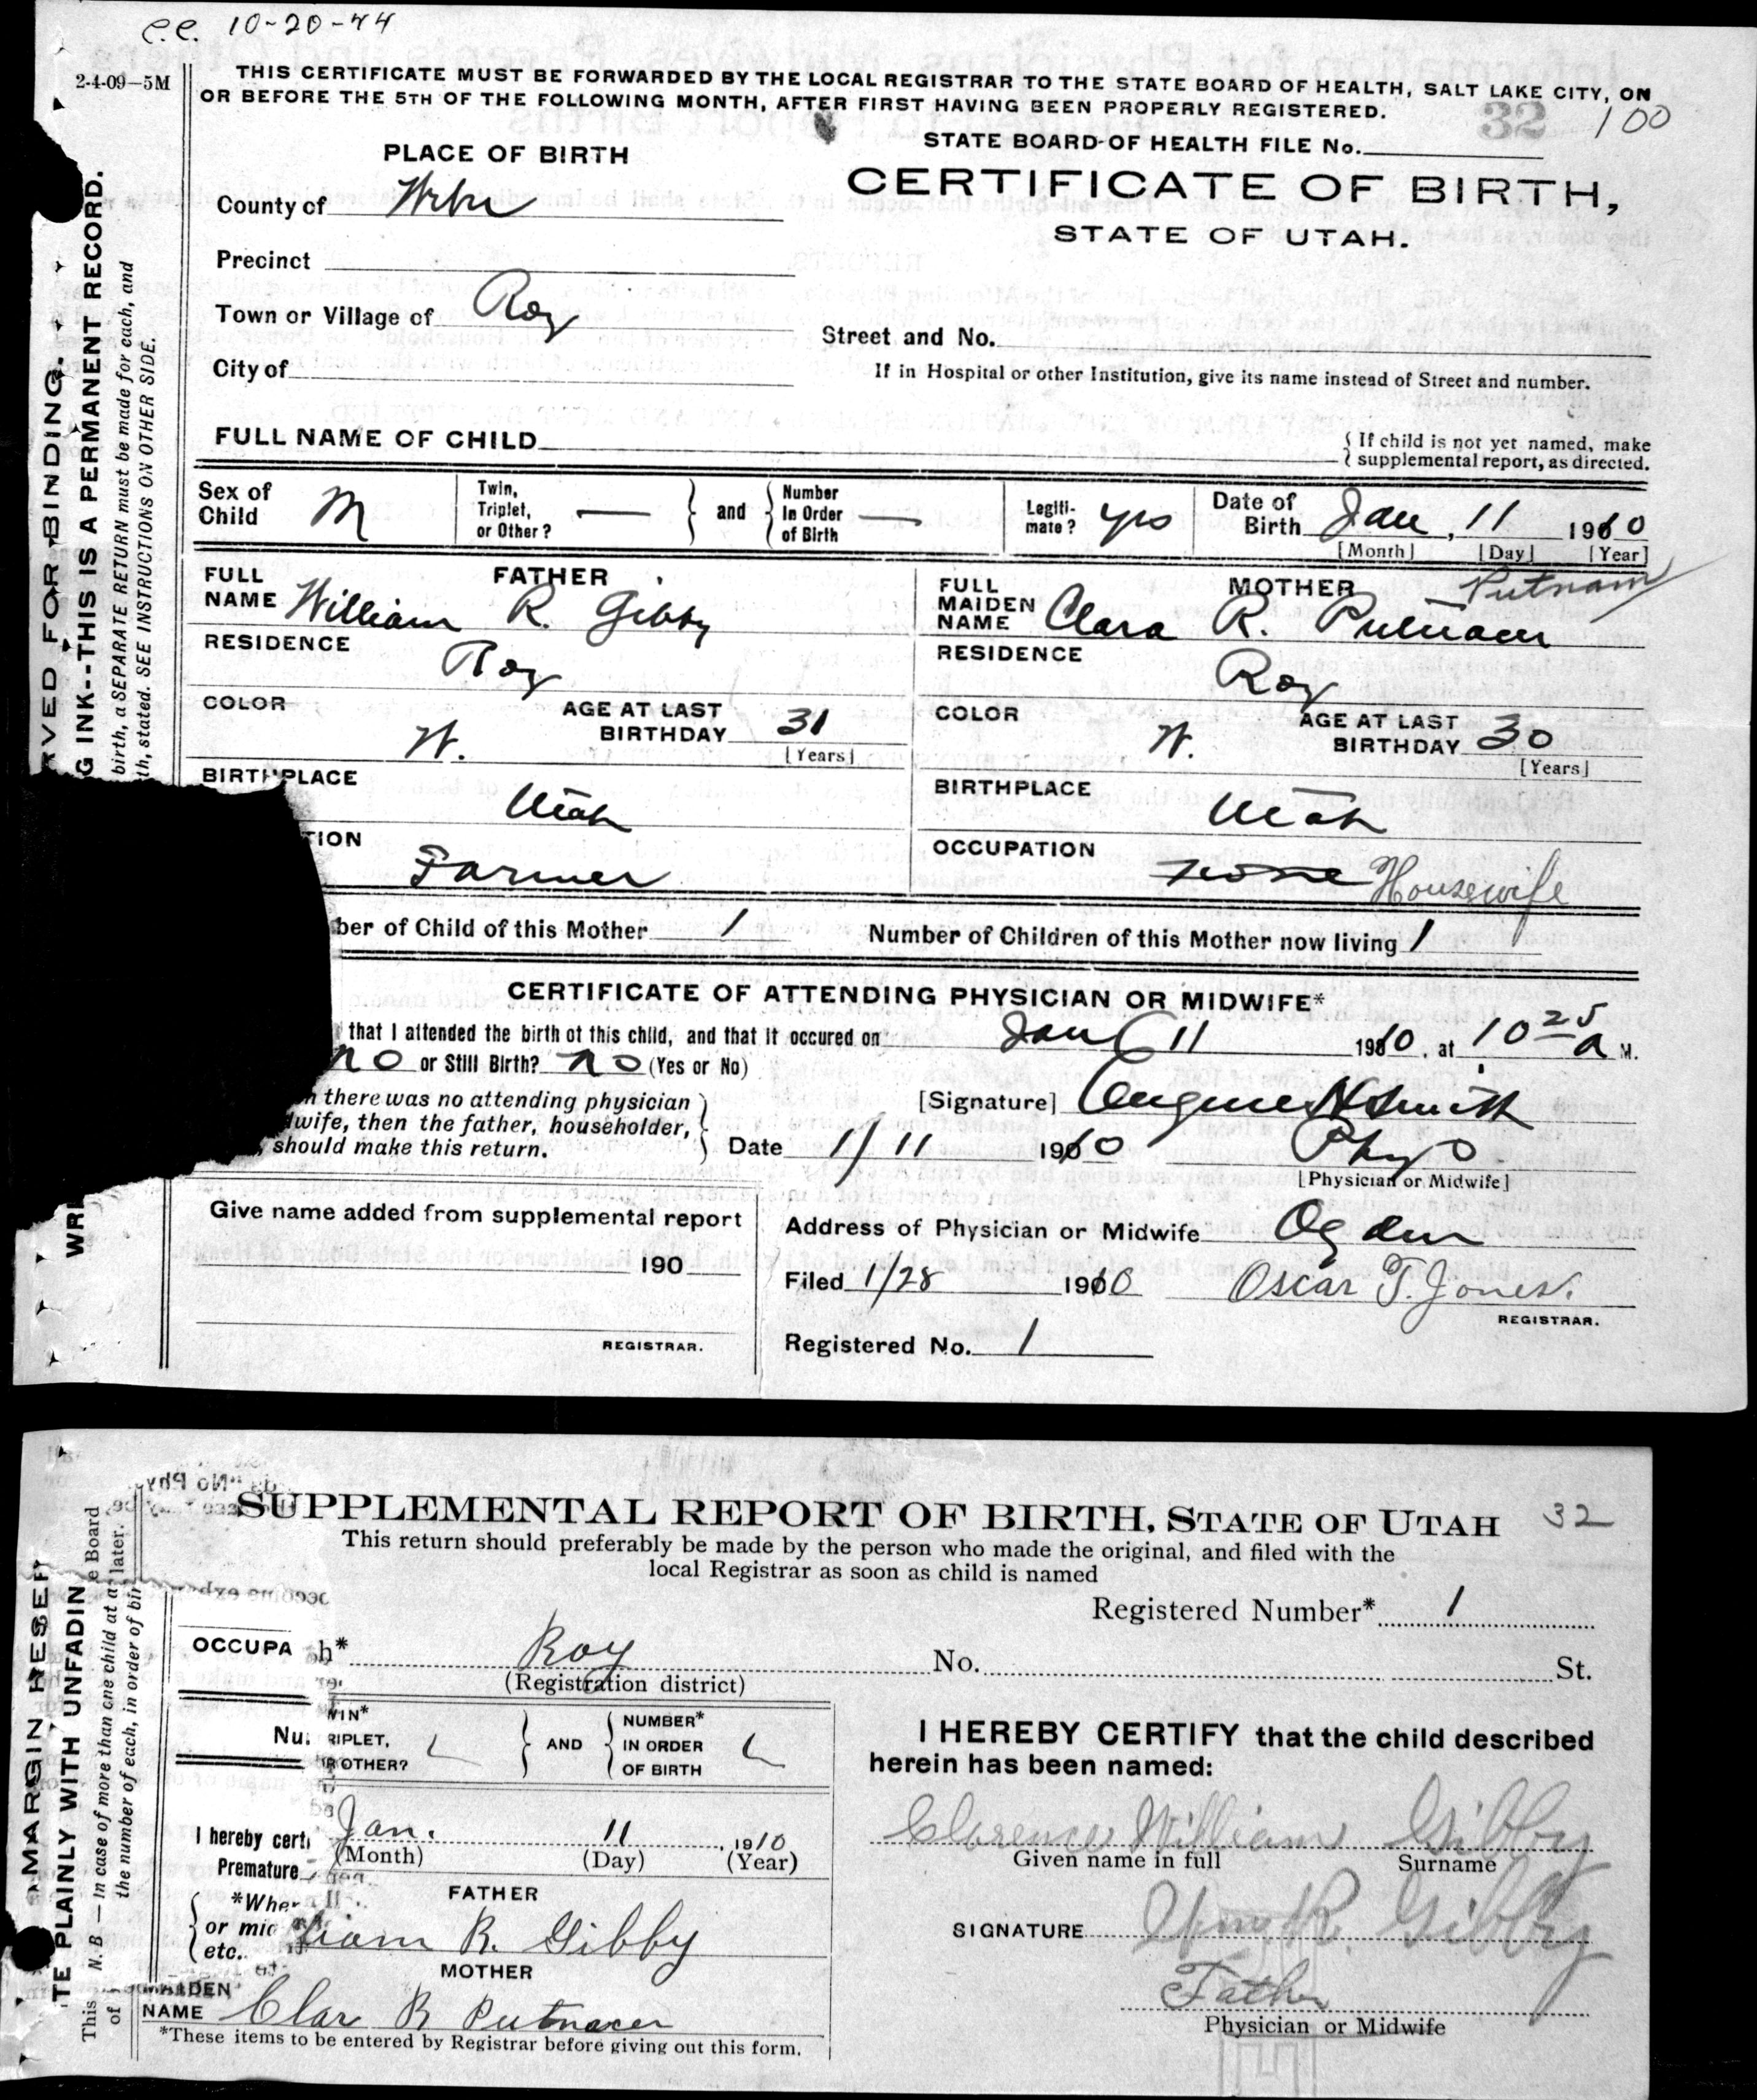 c.c. 10-20-44
2-4-09—5M
THIS CERTIFICATE MUST BE FORWARDED BY THE LOCAL REGISTRAR TO THE STATE BOARD OF HEALTH, SALT LAKE CITY, ON
OR BEFORE THE 5TH OF THE FOLLOWING MONTH, AFTER FIRST HAVING BEEN PROPERLY REGISTERED.
32 100
STATE BOARD OF HEALTH FILE No.
CERTIFICATE OF BIRTH,
STATE OF UTAH.
PLACE OF BIRTH
County of Weber
Precinct
Town or Village of Roy
Street and No.
City of
If in Hospital or other Institution, give its name instead of Street and number.
FULL NAME OF CHILD
{ If child is not yet named, make
supplemental report, as directed.
Sex of Child M
Twin, Triplet, or Other? —
and
Number In Order of Birth —
Legitimate? yes
Date of Birth Jan, 11 1910
[Month] [Day] [Year]
FATHER
FULL NAME William R. Gibby
RESIDENCE Roy
COLOR W.
AGE AT LAST BIRTHDAY 31
[Years]
BIRTHPLACE Utah
TION Farmer
MOTHER — Putnam
FULL MAIDEN NAME Clara R. Putnam
RESIDENCE Roy
COLOR W.
AGE AT LAST BIRTHDAY 30
[Years]
BIRTHPLACE Utah
OCCUPATION None Housewife
ber of Child of this Mother 1
Number of Children of this Mother now living 1
CERTIFICATE OF ATTENDING PHYSICIAN OR MIDWIFE*
that I attended the birth of this child, and that it occured on Jan 11 1910, at 10 25 a M.
no or Still Birth? no (Yes or No)
n there was no attending physician
dwife, then the father, householder,
, should make this return.
[Signature] Eugene H Smith
Date 1/11 1910
Phys
[Physician or Midwife]
Give name added from supplemental report
190
REGISTRAR.
Address of Physician or Midwife Ogden
Filed 1/28 1910 Oscar T. Jones.
REGISTRAR.
Registered No. 1
RVED FOR BINDING.
G INK--THIS IS A PERMANENT RECORD.
birth, a SEPARATE RETURN must be made for each, and
th, stated. SEE INSTRUCTIONS ON OTHER SIDE.
WRI
SUPPLEMENTAL REPORT OF BIRTH, STATE OF UTAH 32
This return should preferably be made by the person who made the original, and filed with the
local Registrar as soon as child is named
Registered Number* 1
OCCUPA
h* Roy No. St.
(Registration district)
Nu
WIN*
RIPLET,
R OTHER?
AND
NUMBER*
IN ORDER
OF BIRTH
I hereby certi
Premature
Jan. 11, 1910
(Month) (Day) (Year)
*When
or mid
etc.
FATHER
liam R. Gibby
MOTHER
MAIDEN NAME Clar R Putnam
*These items to be entered by Registrar before giving out this form.
I HEREBY CERTIFY that the child described
herein has been named:
Clarence William Gibby
Given name in full Surname
SIGNATURE Wm. R. Gibby
Father
Physician or Midwife
MARGIN RESER
TE PLAINLY WITH UNFADIN
N. B — In case of more than one child at a
the number of each, in order of bir
This
of
e Board
later.